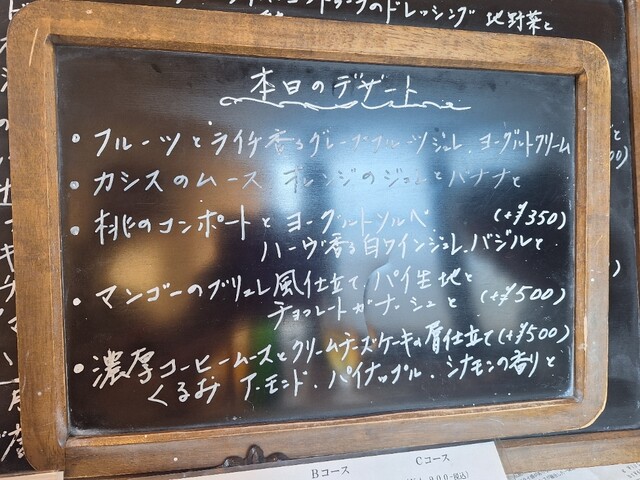 のドレッシング 地野菜と
本日のデザート
・フルーツとライチ香るグレープフルーツジュレ、ヨーグルトクリーム
・カシスのムース オレンジのジュレとバナナと
・桃のコンポートとヨーグルトソルベ (+¥350)
ハーヴ香る白ワインジュレ、バジルと
・マンゴーのブリュレ風仕立て、パイ生地と
チョコレートガナーシュと (+¥500)
・濃厚コーヒームースとクリームチーズケーキの層仕立て(+¥500)
くるみ アーモンド、パイナップル、シナモンの香りと
Bコース
Cコース